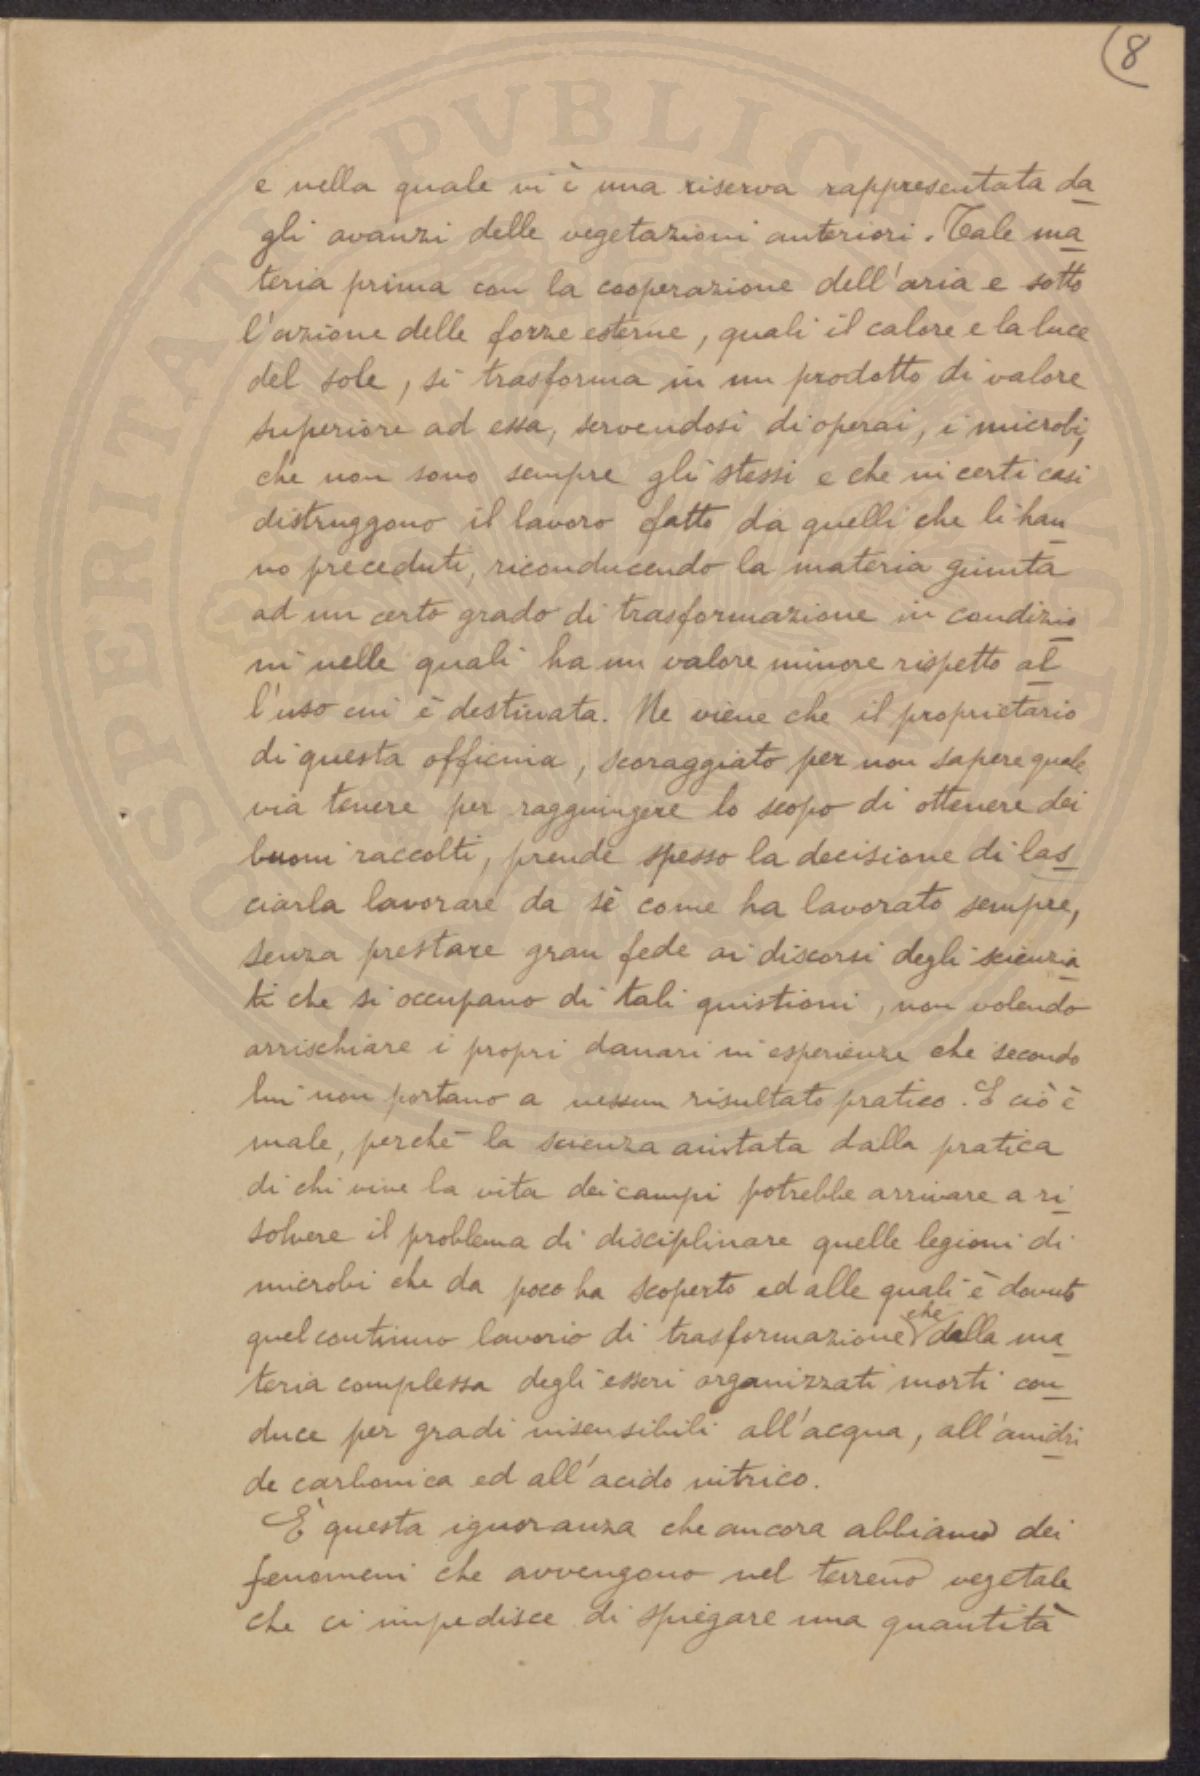 8
e nella quale vi è una riserva rappresentata da
gli avanzi delle vegetazioni anteriori. Tale ma
teria prima con la cooperazione dell'aria e sotto
l'azione delle forze esterne, quali il calore e la luce
del sole, si trasforma in un prodotto di valore
superiore ad essa, servendosi di operai, i microbi,
che non sono sempre gli stessi e che in certi casi
distruggono il lavoro fatto da quelli che li han
no preceduti, riconducendo la materia giunta
ad un certo grado di trasformazione in condizio
ni nelle quali ha un valore minore rispetto al
l'uso cui è destinata. Ne viene che il proprietario
di questa officina, scoraggiato per non sapere quale
via tenere per raggiungere lo scopo di ottenere dei
buoni raccolti, prende spesso la decisione di las
ciarla lavorare da sè come ha lavorato sempre,
senza prestare gran fede ai discorsi degli scienzia
ti che si occupano di tali quistioni, non volendo
arrischiare i propri danari in esperienze che secondo
lui non portano a nessun risultato pratico. E ciò è
male, perchè la scienza aiutata dalla pratica
di chi vive la vita dei campi potrebbe arrivare a ri
solvere il problema di disciplinare quelle legioni di
microbi che da poco ha scoperto ed alle quali è dovuto
quel continuo lavorio di trasformazione che dalla ma
teria complessa degli esseri organizzati morti con
duce per gradi insensibili all'acqua, all'anidri
de carbonica ed all'acido nitrico.
È questa ignoranza che ancora abbiamo dei
fenomeni che avvengono nel terreno vegetale
che ci impedisce di spiegare una quantità